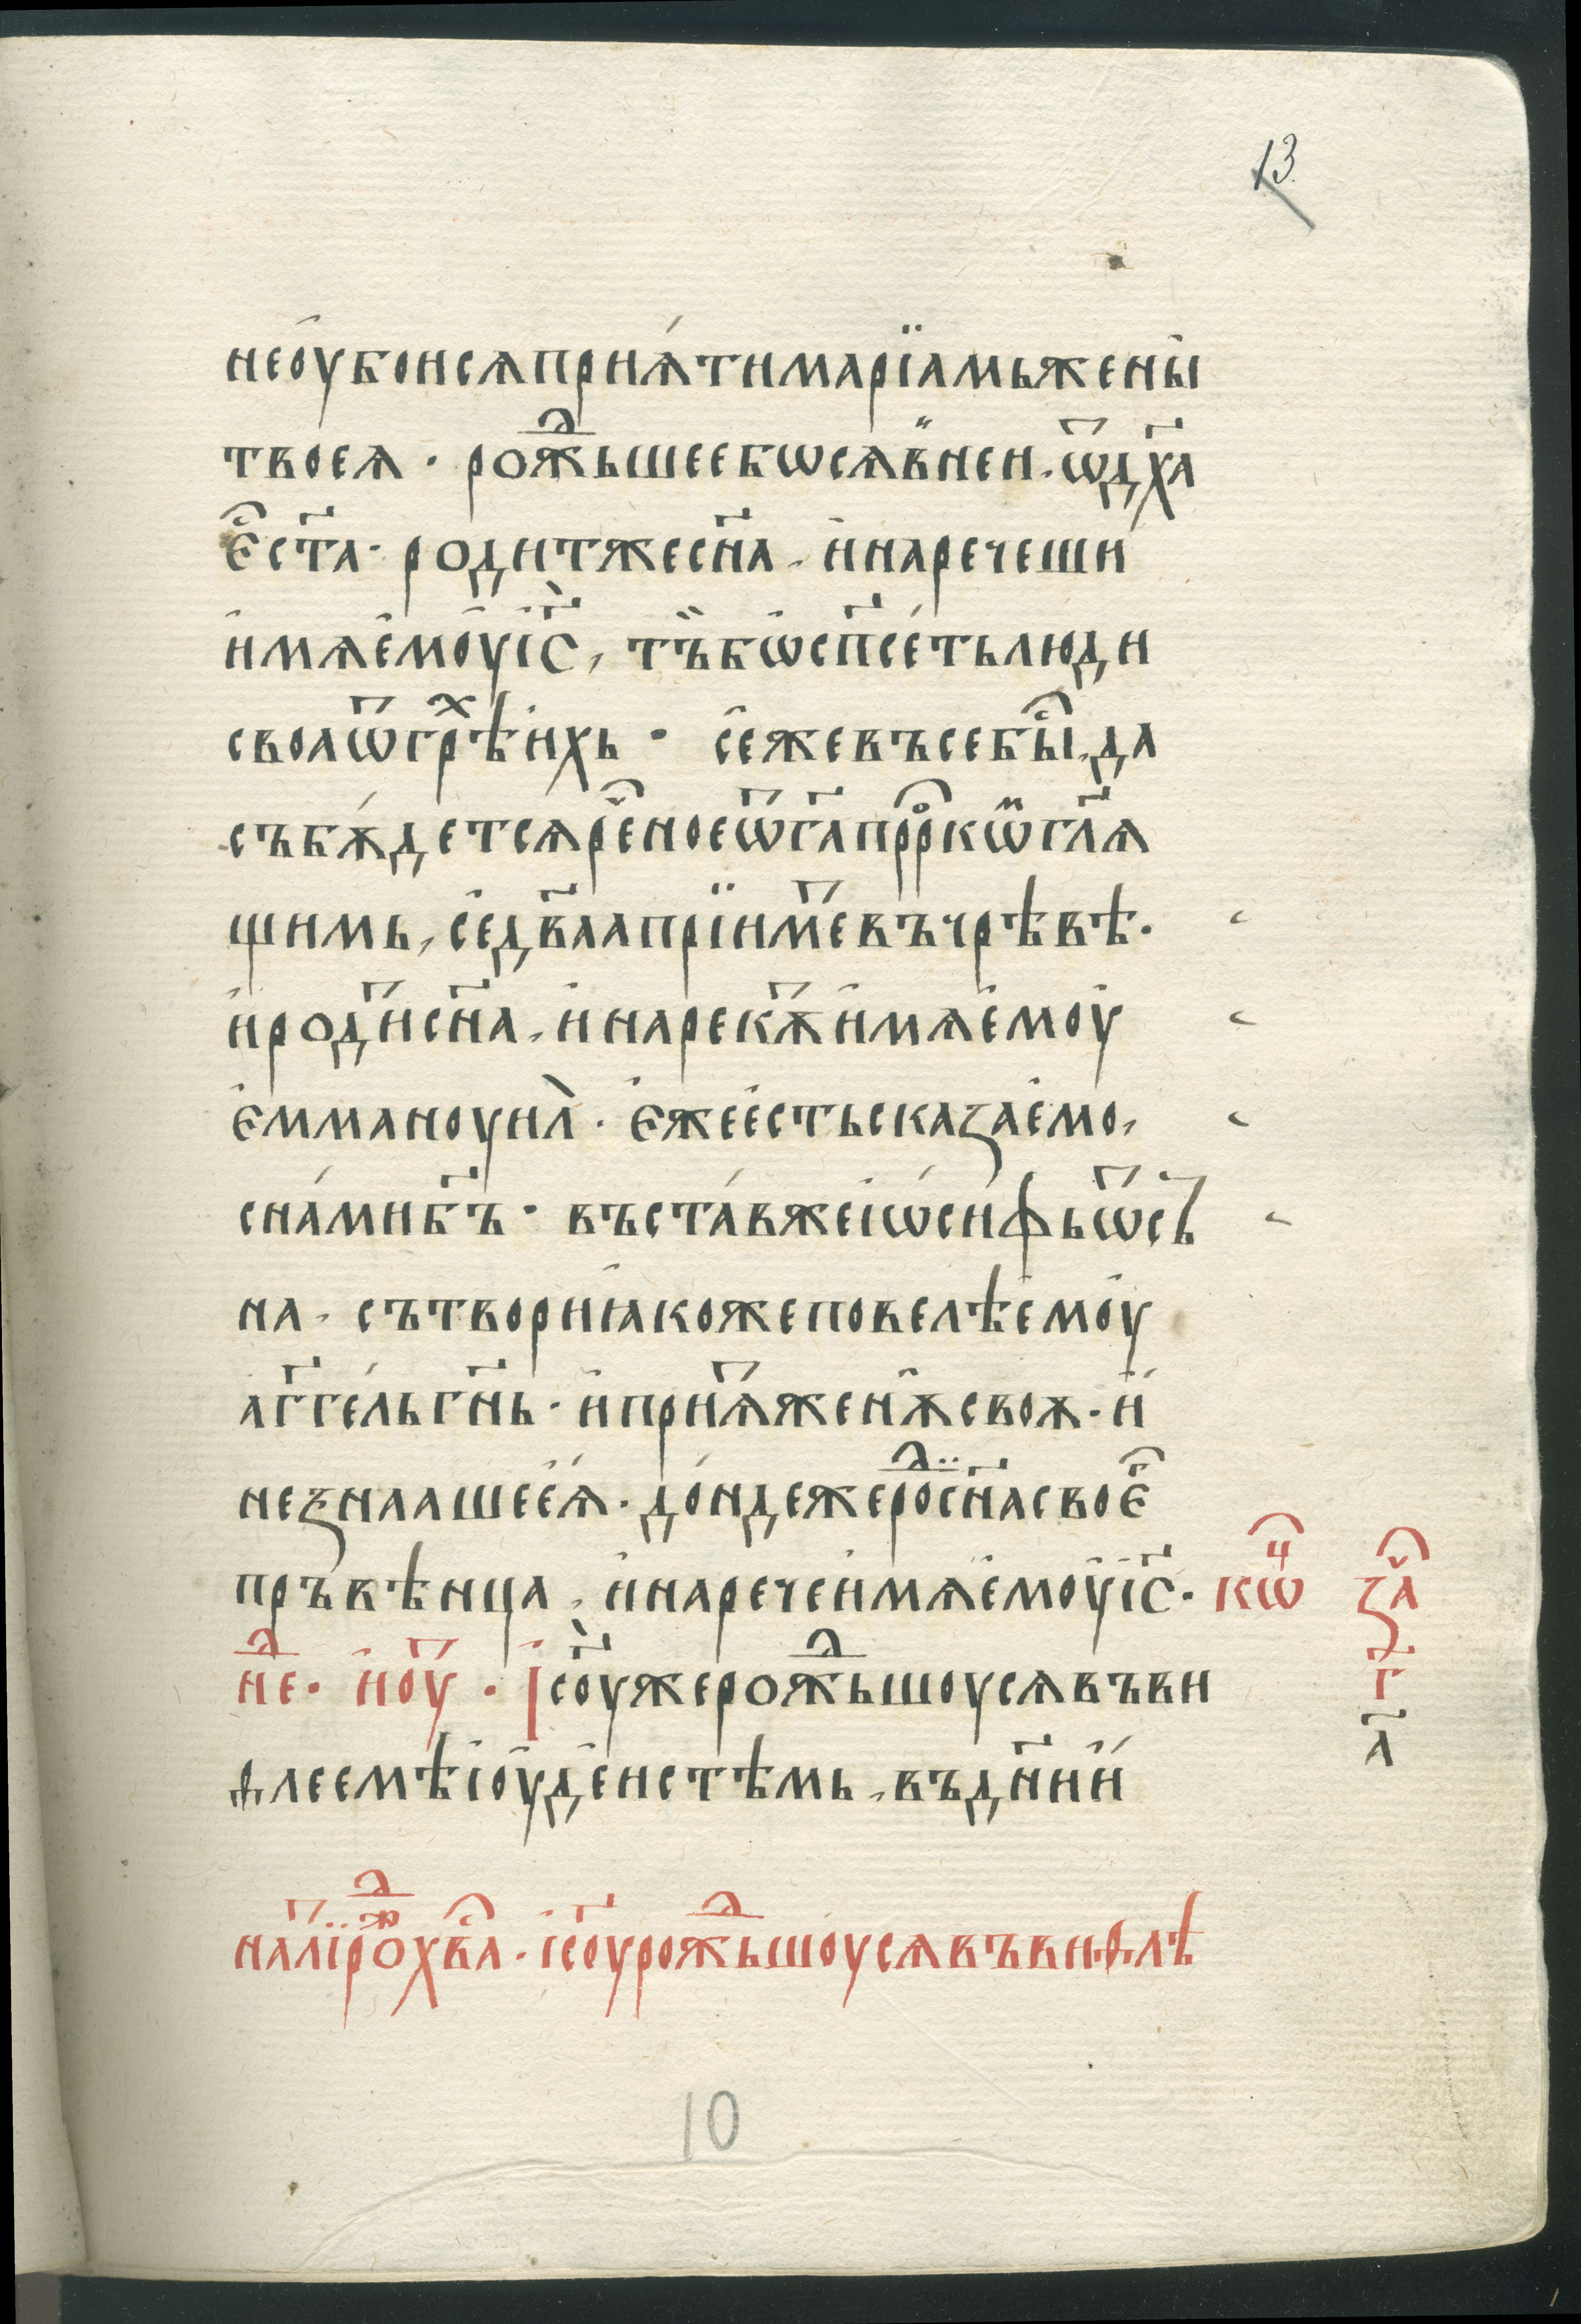 13
неоубоисѧприѧ́тимарїамьжены̀
твоеѧ · рож҃ⷣьшеебѡсѧв̏ней · ѿдх҃а
є҆ⷭст҃а · родитжесн҃а · и҆наречеши
и҆мѧе҆моу҆і҆с҃, тъ̏бѡ҆сп҃се́тьлюди
своаѿгрⷯѣ́и҆хь · се҆жевъсебыⷭ҇, да
събѫ́детсѧрⷱ҇еноеѿг҃апрⷪ҇ркѡ̈мгл҃ѧ
щимь, се҆дв҃аапрїи́мⷮевъчрѣвѣ ·
и҆родⷮи́сн҃а, и҆нарекѫⷮи҆мѧе҆моу҆
е҆ммануи́л̀ · є҆жее҆стьсказае҆мо,
сна́мибг҃ъ · въста́вжеі҆ѡ҆си́фьѿсъ
на · сътвориꙗ҆кожеповелѣе҆моу҆
а҆гг҃е́льгн҃ь · и҆приѧⷮжени҆ѫсвоѫ · и҆
незнаашее҆ѧ҆ · до́ндежероⷣсн҃асвоеⷢ҇
пръвѣнца, и҆наречеи҆мѧе҆моу҆і҆с҃ · кѡⷰ҇
неⷣ · и҆оу҆ⷮ · І҆со҃ужерож҃ⷣьшоусѧвъви
ѳлеемѣі҆оу҆де҆истѣмь, въдн҃и҆и́
налїⷮрⷤ҇охв҃а · і҆со҃урож҃ⷣьшоусѧвъвиѳлѣ
заⷱ҇
г҃
а҃
10